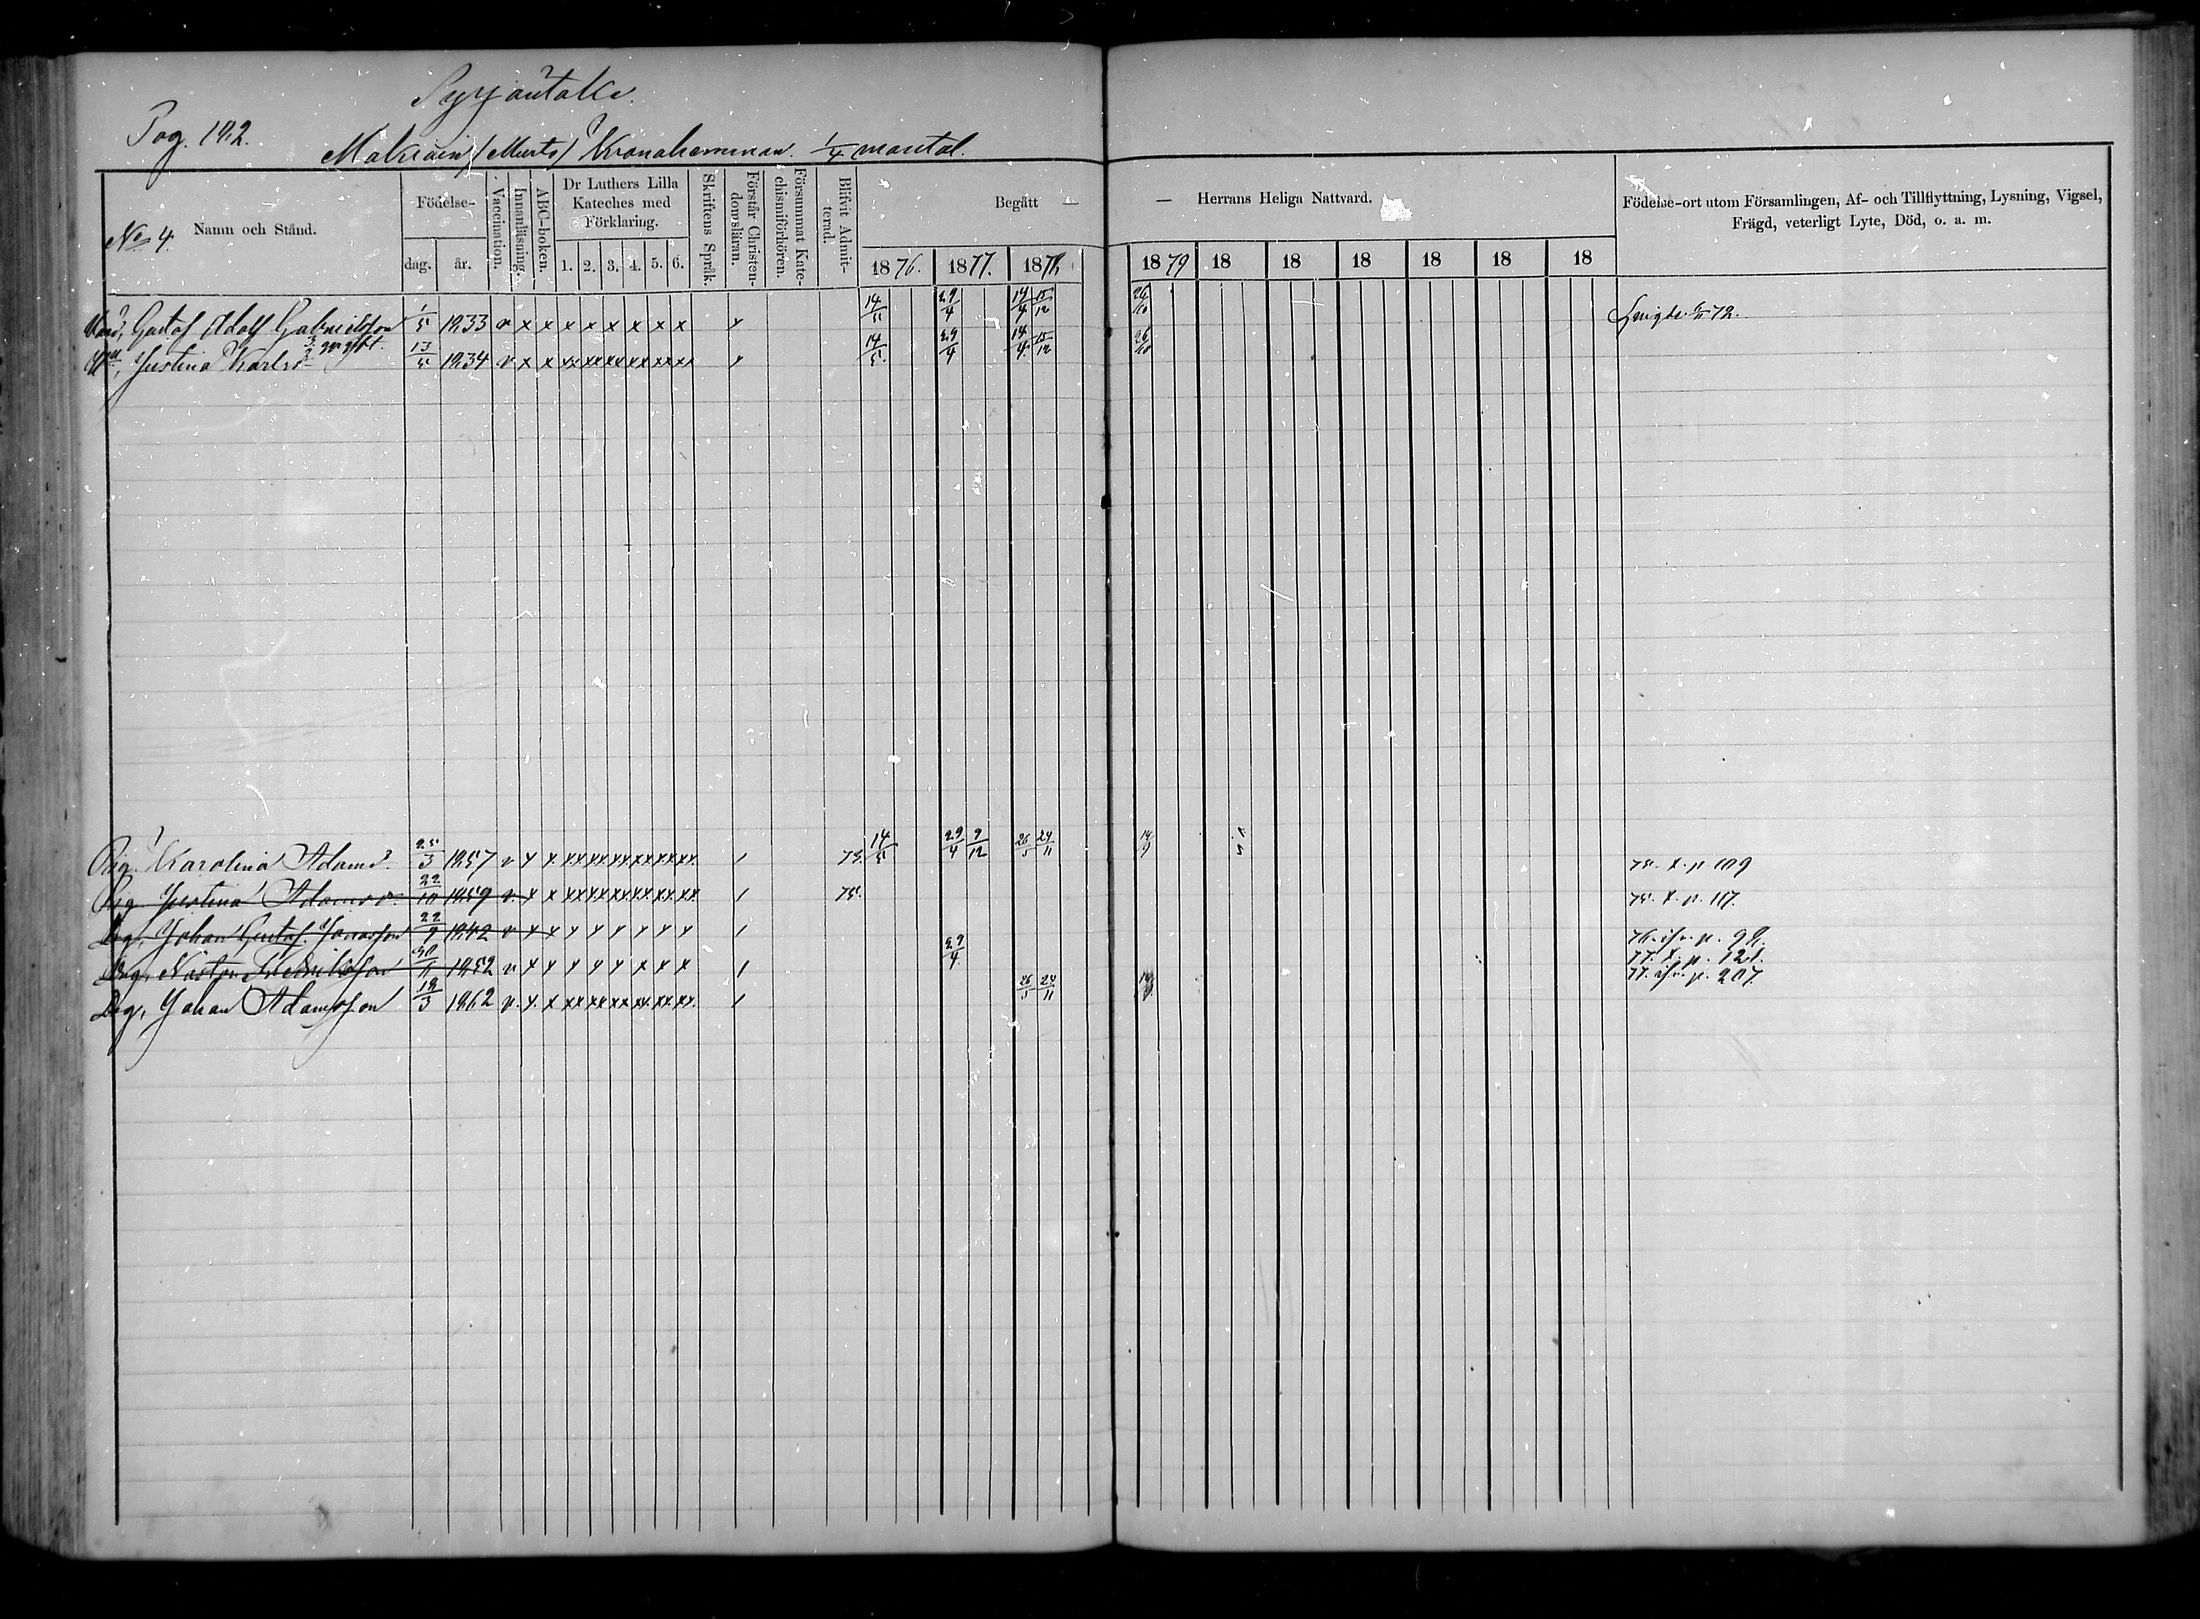 Syrjäntaka.
Pag. 182.
Makiain / Murto / Kronohemman. 1/4 mantal.
No 4.
Namn och Stånd.
Födelse-
dag.
år.
Vaccination.
Innanläsning.
ABC-boken.
Dr Luthers Lilla
Kateches med
Förklaring.
1. 2. 3. 4. 5. 6.
Skriftens Språk.
Förstår Christen-
domsläran.
Försummat Kate-
chismiförhören.
Blifvit Admit-
terad.
Begått —
— Herrans Heliga Nattvard.
1876. 1877. 1878.
1879 18 18 18 18 18 18
Födelse-ort utom Församlingen, Af- och Tillflyttning, Lysning, Vigsel,
Frägd, veterligt Lyte, Död, o. a. m.
Gustaf Adolf Gabrielsson 1/5 1833 v x x x x x x x x x 14/5 29/4 14/4 15/12 26/10 72.
3. gr gift.
Justina Karlsd 13/5 1834 v x x xx xx xx xx xx xx 14/5 29/4 14/4 15/12 26/10
Pig. Karolina Adamsd. 25/3 1857 v x x xx xx xx xx xx xx / 75. 14/5 29/4 9/12 26/5 24/11 75. x. p 109
Pig. Justina Adamsd. 22/10 1859 v. x x xx xx xx xx xx xx / 75. 75. x. p. 117.
Drg. Johan Gustaf Jonasson 22/9 1842 v x x x x x x x x / 76. p. 98.
Drg. Nestor Fredriksson 1852 v x x x x x x x x / 29/4 77. x. p. 121.
77. p. 207.
Drg, Johan Adamsson 18/3 1862 v. x. x xx xx xx xx xx xx. / 26/5 24/11